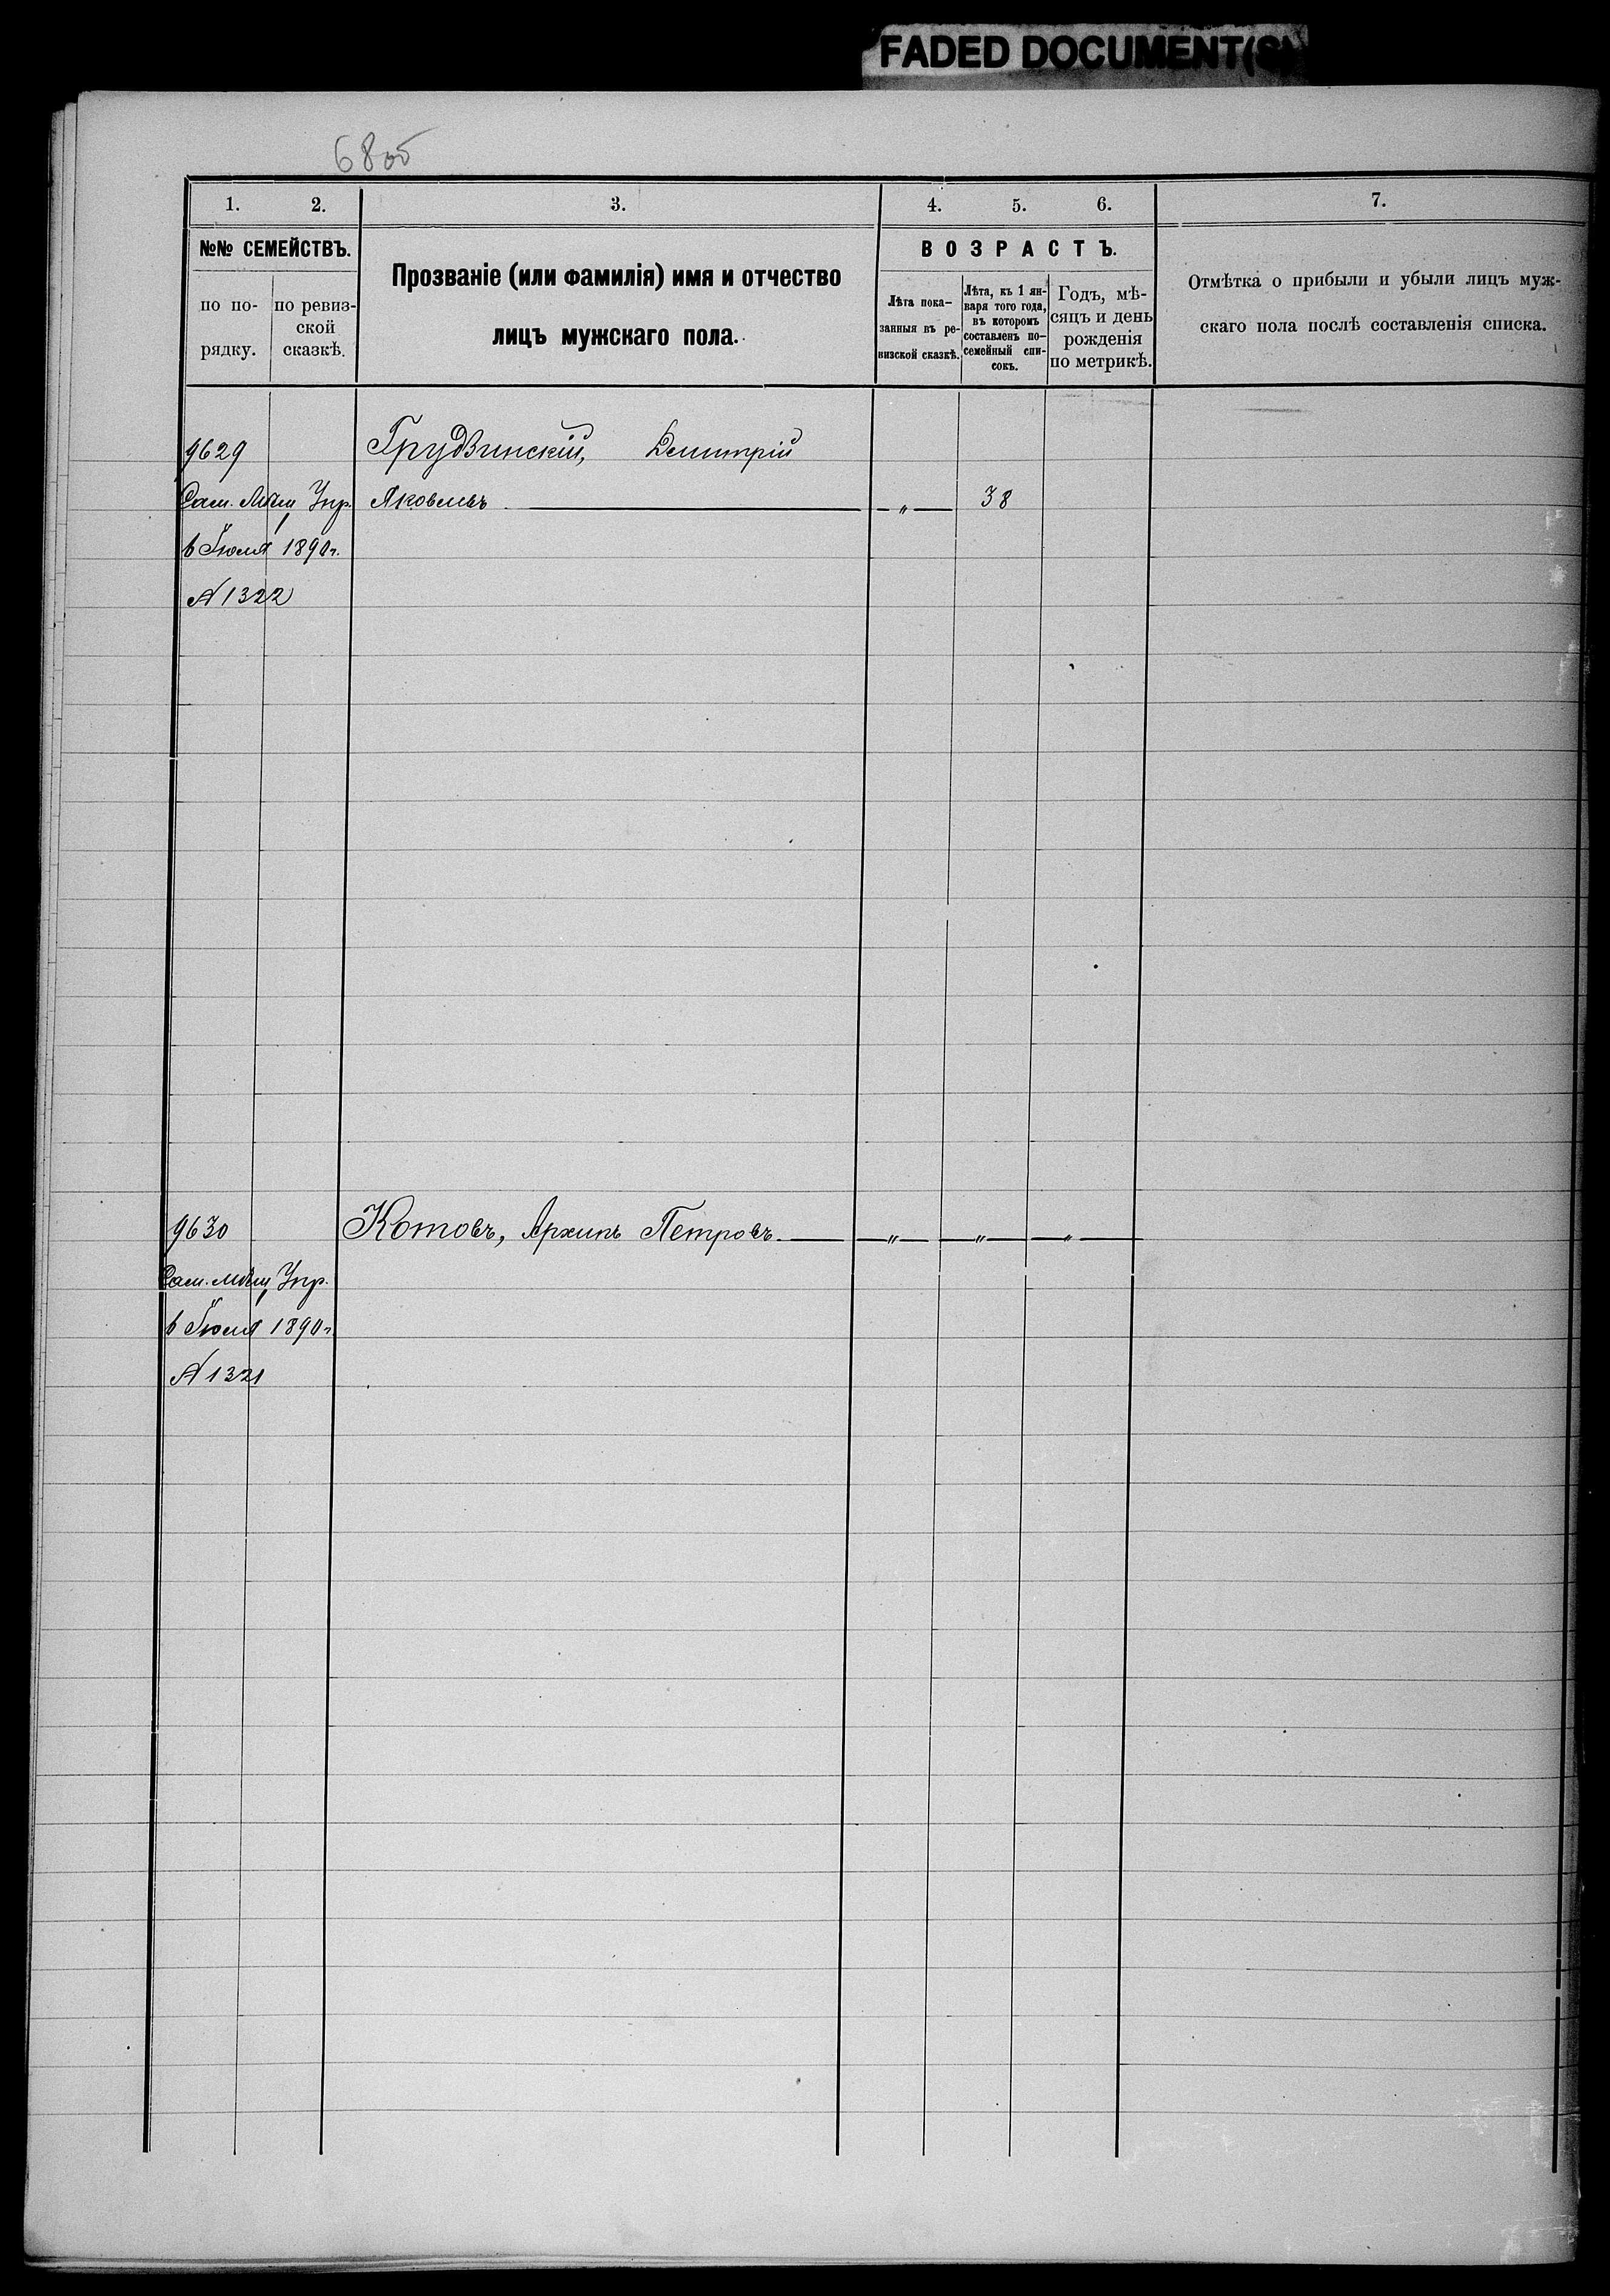 FADED DOCUMENT(S)
68об
1. 2. 3. 4. 5. 6. 7.
№№ СЕМЕЙСТВЪ.
по по-
рядку.
по ревиз-
ской
сказкѣ.
Прозваніе (или фамилія) имя и отчество
лицъ мужскаго пола.
ВОЗРАСТЪ.
Лѣта пока-
занныя въ ре-
визской сказкѣ.
Лѣта, къ 1 ян-
варя того года,
въ которомъ
составленъ по-
семейный спи-
сокъ.
Годъ, мѣ-
сяцъ и день
рожденія
по метрикѣ.
Отмѣтка о прибыли и убыли лицъ муж-
скаго пола послѣ составленія списка.
9629 Грудзинскій, Дмитрій
Сам. Мѣщ Упр. Яковлевъ — „ — 38
6 Іюля 1890 г.
№ 1322
9630 Котовъ, Архипъ Петровъ. — „ — „ — „ —
Сам. Мѣщ Упр.
6 Іюля 1890 г.
№ 1321